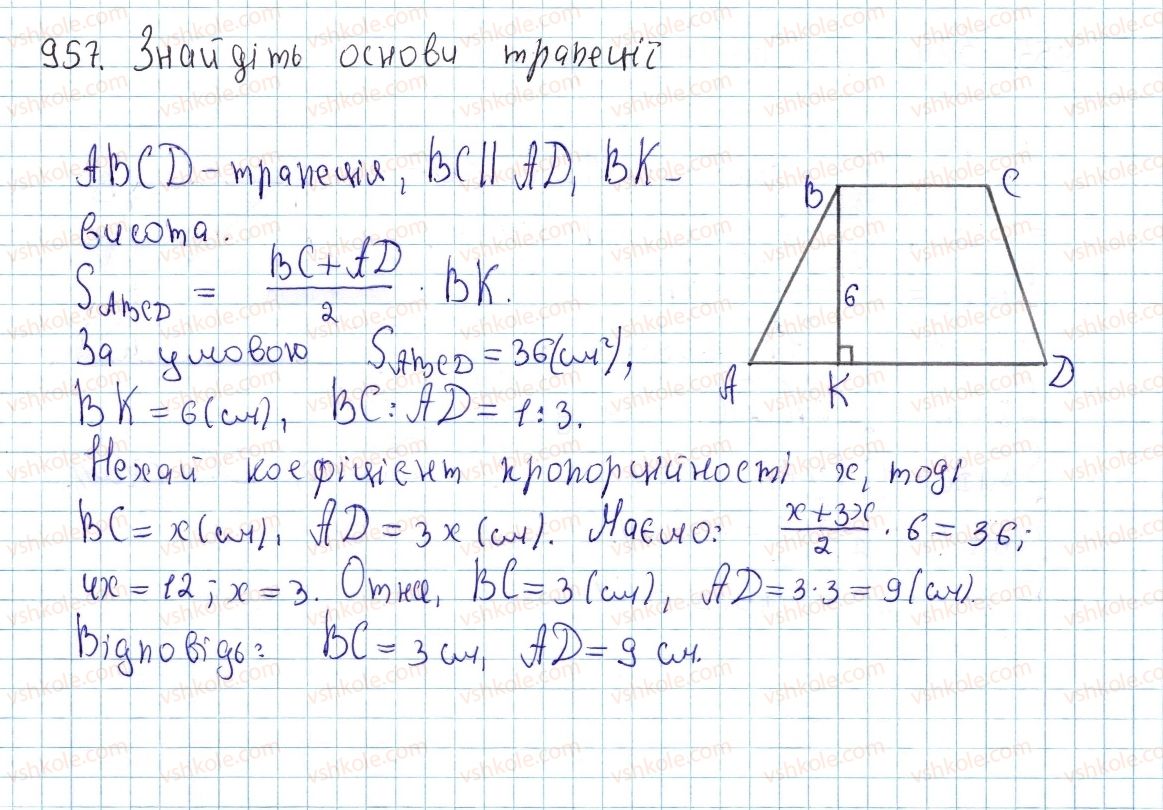 957. Знайдіть основи трапеції
ABCD – трапеція, BC || AD, BK –
висота.
S_ABCD = (BC + AD)/2 · BK.
За умовою S_ABCD = 36 (см²),
BK = 6 (см), BC : AD = 1 : 3.
Нехай коефіцієнт пропорційності x, тоді
BC = x (см), AD = 3x (см). Маємо: (x + 3x)/2 · 6 = 36;
4x = 12; x = 3. Отже, BC = 3 (см), AD = 3·3 = 9 (см).
Відповідь: BC = 3 см, AD = 9 см.
B C
6
A K D
vshkole.com